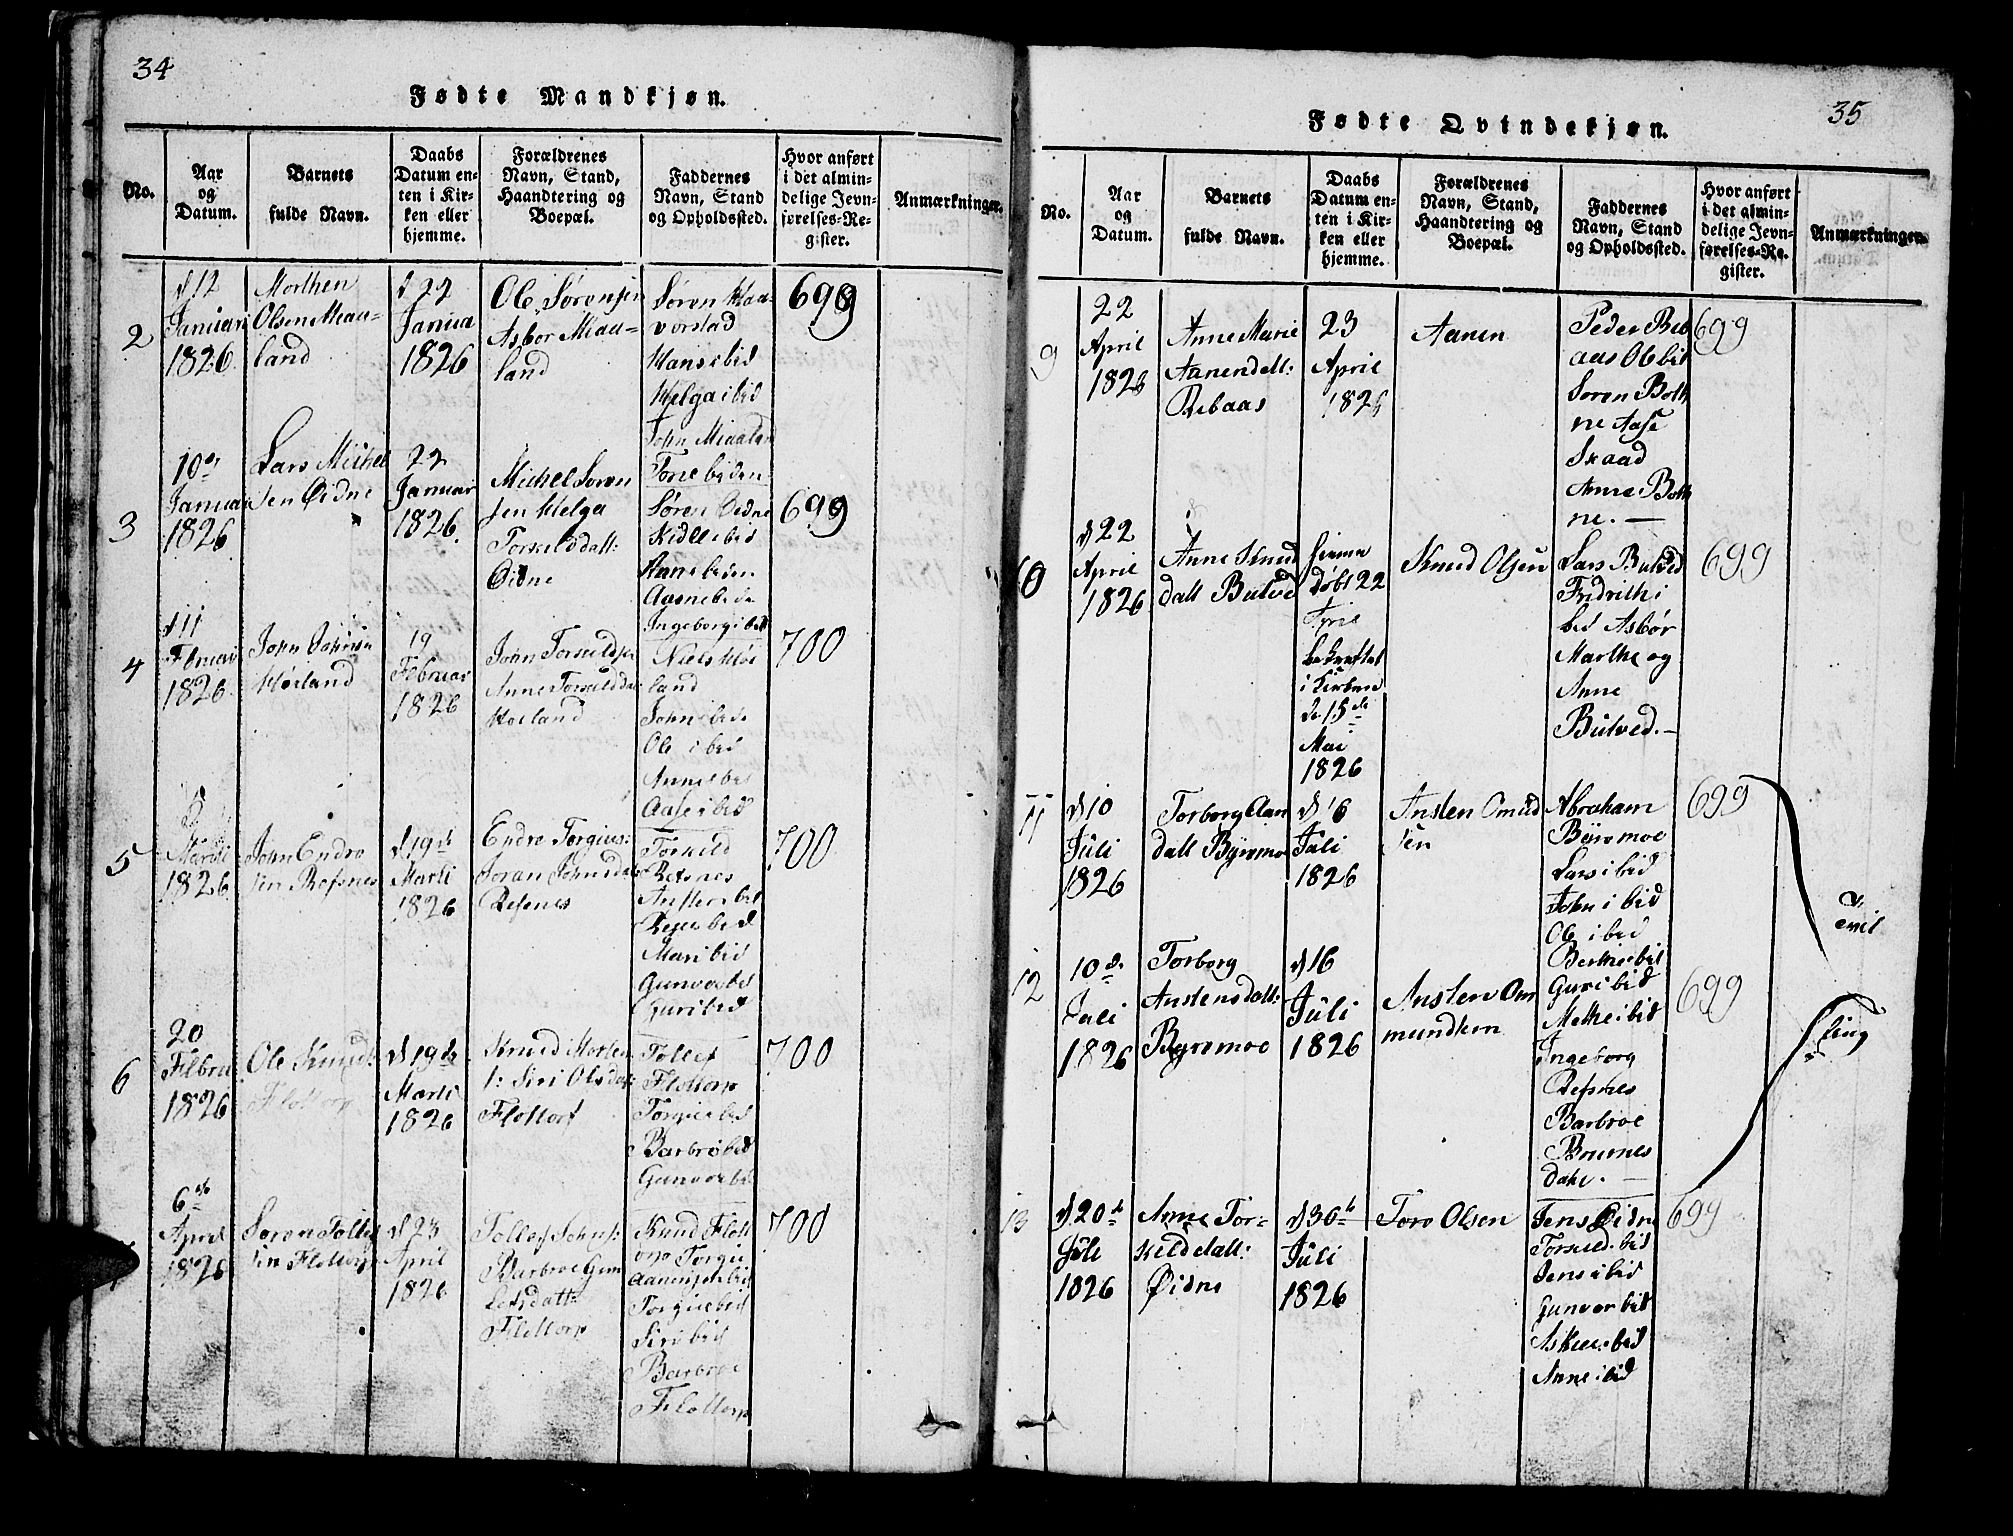 34
Fødte Mandkjøn.
No.
Aar og Datum.
Barnets fulde Navn.
Daabs Datum enten i Kirken eller hjemme.
Forældrenes Navn, Stand, Haandtering og Boepæl.
Faddernes Navn, Stand og Opholdssted.
Hvor anført i det almindelige Jevnførelses-Register.
Anmærkninger.
2
d 12
Januari
1826
Morthen
Olsen Miau=
land
d 22
Janua
1826
Ole Sørensen
Asbor Miau=
land
Søren Haa=
vorstad
Hans ibid
Helga ibid
John Miaaland
Tone
699
3
10de
Januar
1826
Lars Michel
sen Øidne
22
Januar
1826
Michel Søren
sen Helga
Torkilddatt:
Øidne
Søren Øidne
Kidle ibid
Anne
Aasne
Ingeborg ibid
699
4
d 11
Februari
1826
John Johnsen
Høiland
19
Februar
1826
John Torkildsen
Anne Torkildda
Høiland
Niels Høi
land
John
Ole ibid
Anne ibid
Aase ibid
700
5
5
Marti
1826
John Endre
sen Refsnes
d 19de
Marti
1826
Endre Torgius:
Joran Johnsda
Refsnes
Torkild
Refsnes
Ansten ibid
Mari ibid
Gunvor ibid
Guri ibid
700
6
20
Febru
1826
Ole Knuds:
Flottorp
d 19de
Marti
1826
Knud Morten
s: Siri Olsdat
Flottorp
Tollef
Flottorp
Torgius ibid
Barbro ibid
Gunvor ibid
700
6te
April
1826
Søren Tollef
sen Flottorp
d 23
April
1826
Tollef
Barbroe Gun
Flottorp
Knud Flott
orp Torgiu
Torgius ibid
Siri ibid
Barbroe
Flottorp
700
35
Fødte Qvindekjøn.
No.
Aar og Datum.
Barnets fulde Navn.
Daabs Datum enten i Kirken eller hjemme.
Forældrenes Navn, Stand, Haandtering og Boepæl.
Faddernes Navn, Stand og Opholdssted.
Hvor anført i det almindelige Jevnførelses-Register.
Anmærkninger.
9
22
April
1826
Anne Marie
Aanendatt:
Rebaas
23
April
1826
Aanen
Peder Reb
aas Ole ibid
Søren Both
ne Aase
Skaad
Anne Both
ne. —
699
10
d 22
April
1826
Anne Knud
datt Butved
hjemme
døbt 22
April
bekræftet
i Kirken
de 15de
Mai
1826
Knud Olsen
Lars Butved
Fridrich i
bid Asbør
Marthe og
Anne
Butved. —
699
11
d 10
Juli
1826
Torborg
datt Byremoe
d 16
Juli
1826
Ansten Omud
sen
Abraham
Byremoe
Lars i bid
John i bid
Ole i bid
Berthe ibid
699
12
10de
Juli
1826
Torborg
Anstensdatt:
Byremoe
d 16
Juli
1826
Ansten Om
mundsen
Guri ibid
Methe ibid
Ingeborg
Refsnes
Barbroe
Bournes
dahl. —
699
13
d 20de
Juli
1826
Anne Tor=
kilddatt:
Øidne
d 30te
Juli
1826
Toro Olsen
Jens Øidne
Torkild ibid
Jens i bid
Gunvor ibid
Anne i bid
699